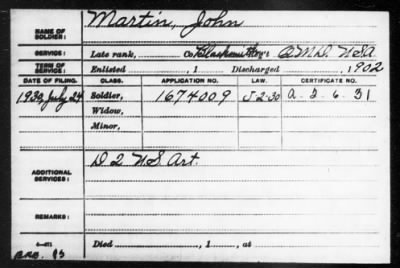 NAME OF SOLDIER: Martin, John
SERVICE: Late rank, Co. Blacksmith, Reg't Q.M.D. U.S.A.
TERM OF SERVICE: Enlisted, 1 Discharged, 1902
DATE OF FILING. CLASS. APPLICATION NO. LAW. CERTIFICATE NO.
1930, July 24 Soldier, 1674009 J-2-30 A. 2. 6. 31
Widow,
Minor,
ADDITIONAL SERVICES: D 2 U.S. Art.
REMARKS:
Died, 1, at